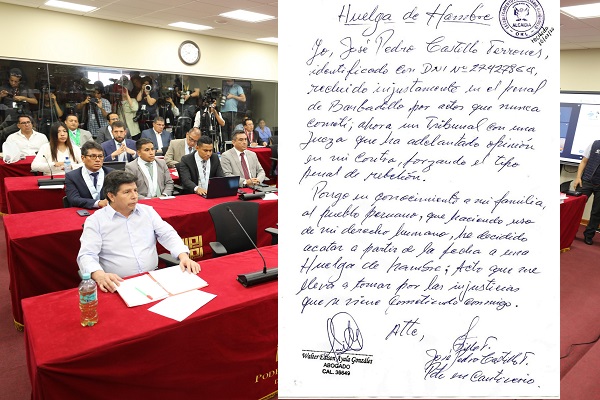 Huelga de Hambre
ALCAIDIA
Yo, José Pedro Castillo Terrones,
identificado con DNI Nº 27427864,
recluido injustamente en el penal
de Barbadillo por actos que nunca
cometí; ahora un Tribunal con una
Jueza que ha adelantado opinión
en mi contra, forzando el tipo
penal de rebelión.
Pongo en conocimiento a mi familia,
al pueblo peruano, que haciendo uso
de mi derecho humano, he decidido
acatar a partir de la fecha a una
Huelga de Hambre; Acto que me
lleva a tomar por las injusticias
que se viene cometiendo conmigo.
Atte,
Walter Edison Ayala Gonzáles
ABOGADO
CAL. 38649
José Pedro Castillo T.
Pdte en Cautiverio.